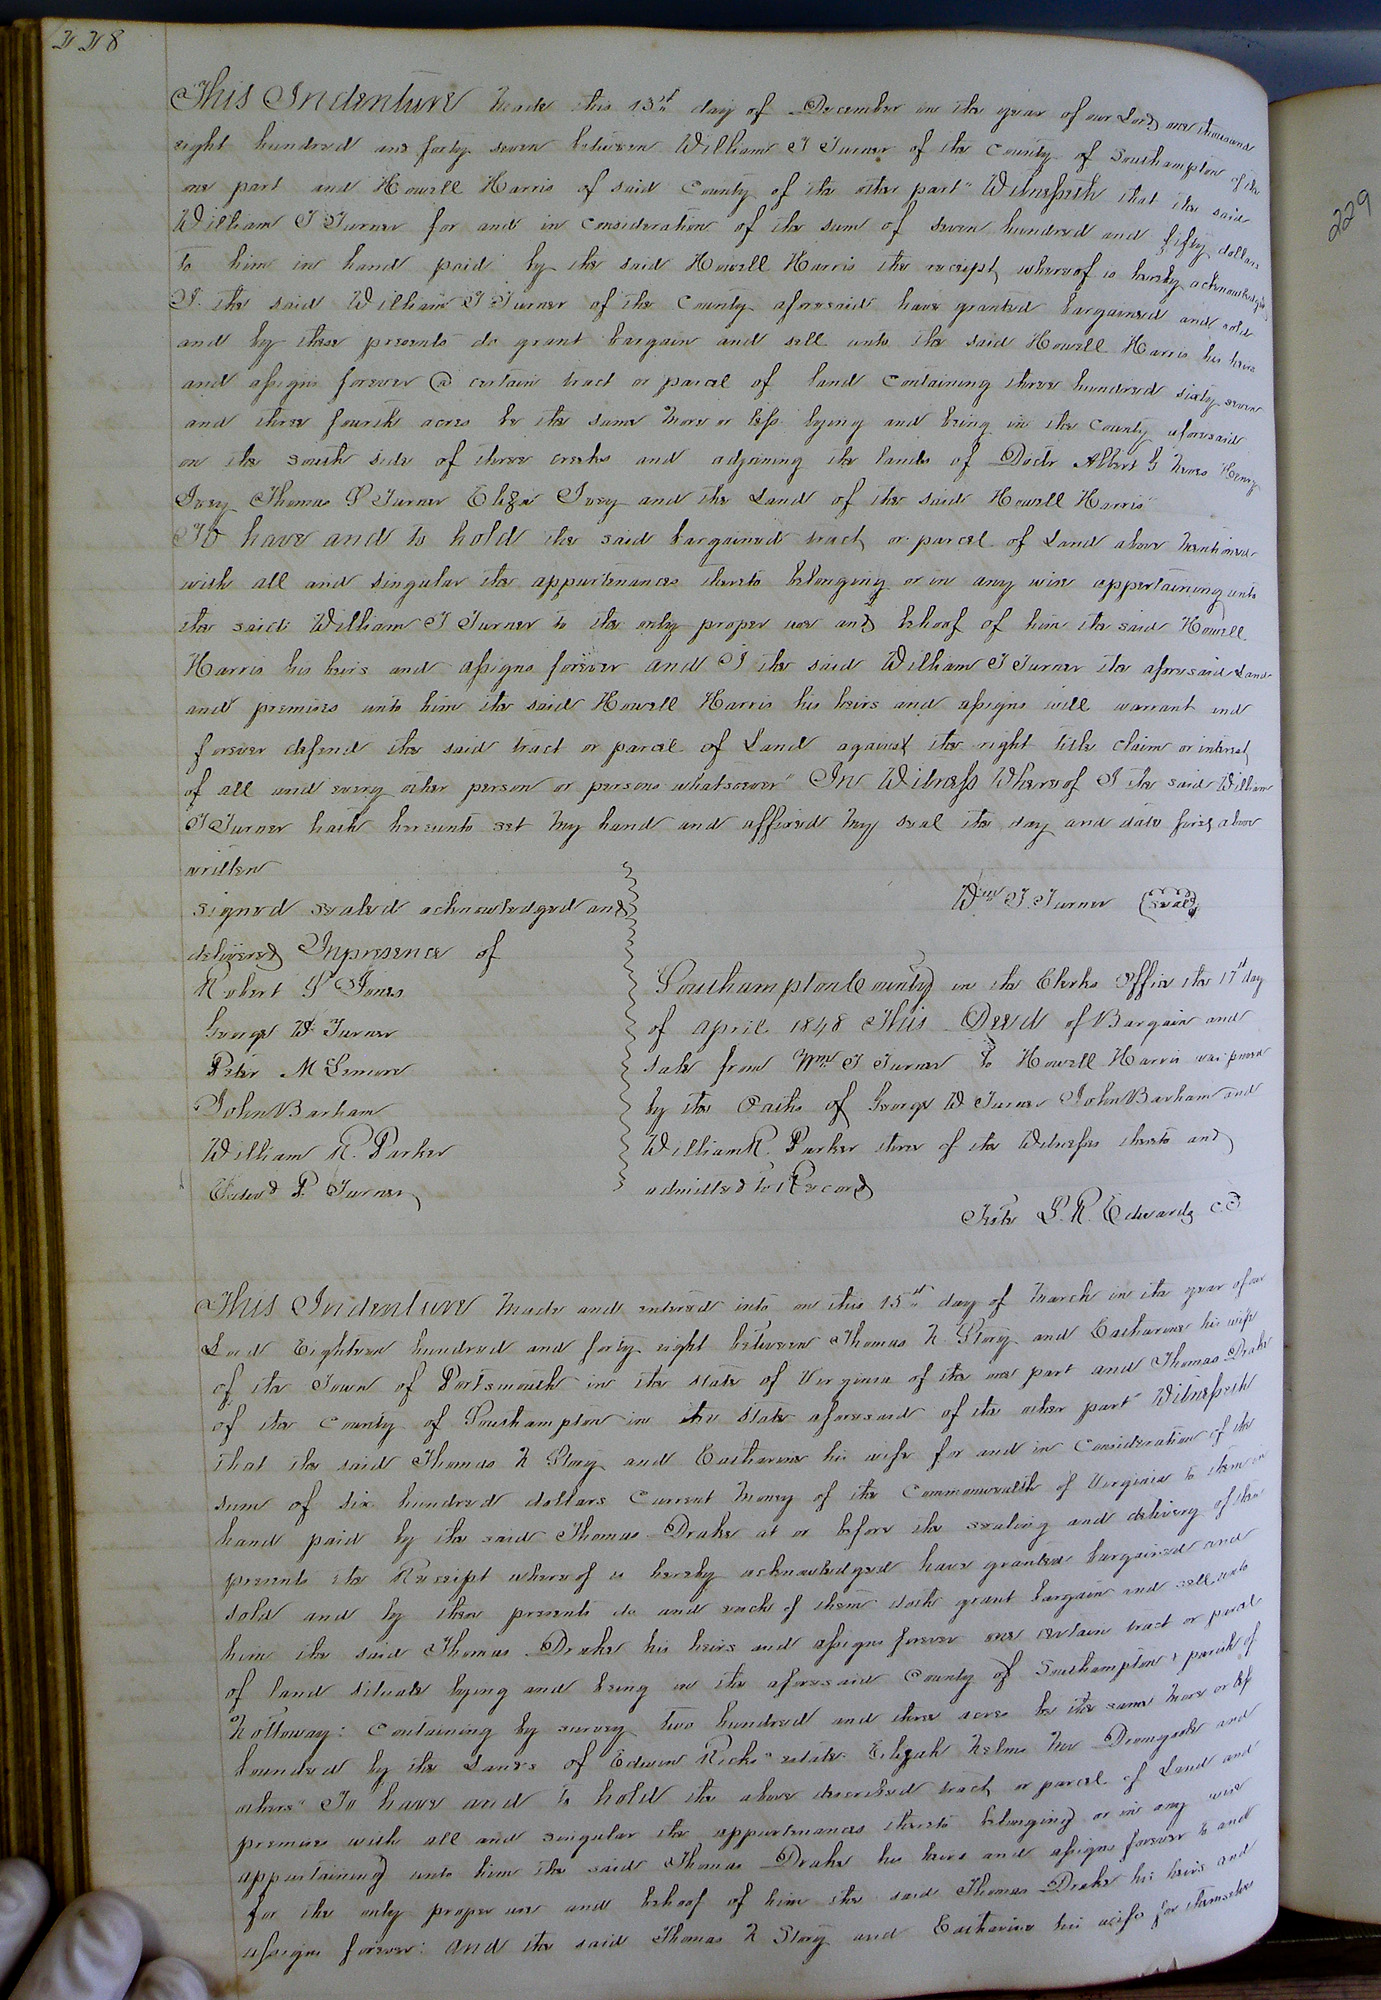 228
This Indenture made this 13th day of December in the year of our Lord one thousand
eight hundred and forty seven between William T Turner of the County of Southampton of the
one part and Howell Harris of said County of the other part" Witnesseth that the said
William T Turner for and in consideration of the sum of seven hundred and fifty dollars
to him in hand paid by the said Howell Harris the receipt whereof is hereby acknowledged
I the said William T Turner of the County aforesaid have granted bargained and sold
and by these presents do grant bargain and sell unto the said Howell Harris his heirs
and assigns forever a certain tract or parcel of land containing three hundred sixty seven
and three fourth acres be the same more or less lying and being in the County aforesaid
on the South side of three creeks and adjoining the lands of Doctr Albert G Henry
Ivey Thomas P Turner Eliza Ivey and the Land of the said Howell Harris"
To have and to hold the said bargained tract or parcel of Land above mentioned
with all and singular the appurtenances thereto belonging or in any wise appertaining unto
the said William T Turner to the only proper use and behoof of him the said Howell
Harris his heirs and assigns forever and I the said William T Turner the aforesaid Land
and premises unto him the said Howell Harris his heirs and assigns will warrant and
forever defend the said tract or parcel of Land against the right title claim or interest
of all and every other person or persons whatsoever" In Witness Whereof I the said William
T Turner hath hereunto set my hand and affixed my seal the day and date first above
written
Wm T. Turner (seal)
signed sealed acknowledged and
delivered Inpresence of
Robert S Jones
George W Turner
Peter McLemore
John Barham
William R. Parker
Edwd P. Turner
Southampton County in the Clerks Office the 17th day
of April 1848 This Deed of Bargain and
sale from Wm T Turner to Howell Harris was proved
by the Oaths of George W Turner John Barham and
William R. Parker three of the Witnesses thereto and
admitted to Record
Teste L. R. Edwards C.C
This Indenture made and entered into on this 15th day of March in the year of our
Lord Eighteen hundred and forty eight between Thomas N Story and Catharine his wife
of the Town of Portsmouth in the state of Virginia of the one part and Thomas Drake
of the County of Southampton in the State aforesaid of the other part" Witnesseth
that the said Thomas N Story and Catharine his wife for and in Consideration of the
sum of six hundred dollars Current money of the Commonwealth of Virginia to them in
hand paid by the said Thomas Drake at or before the sealing and delivery of these
presents the Receipt whereof is hereby acknowledged have granted bargained and
sold and by these presents do and each of them doth grant bargain and sell unto
him the said Thomas Drake his heirs and assigns forever one certain tract or parcel
of land situate lying and being in the aforesaid County of Southampton & parish of
Nottoway: Containing by survey two hundred and three acres be the same more or less
bounded by the Lands of Edwin Ricks" estate Elijah Helms and
others" To have and to hold the above described tract or parcel of Land and
premises with all and singular the appurtenances thereto belonging or in any wise
appertaining unto him the said Thomas Drake his heirs and assigns forever to and
for the only proper use and behoof of him the said Thomas Drake his heirs and
assigns forever: and the said Thomas N Story and Catharine his wife for themselves
229